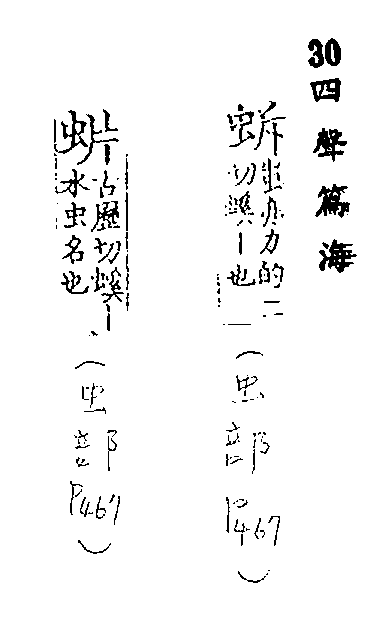 30四聲篇海
蚸
亦力的二
切螇丨也
(虫部P467)
古歷切螇丨
水虫名也
(虫部P467)